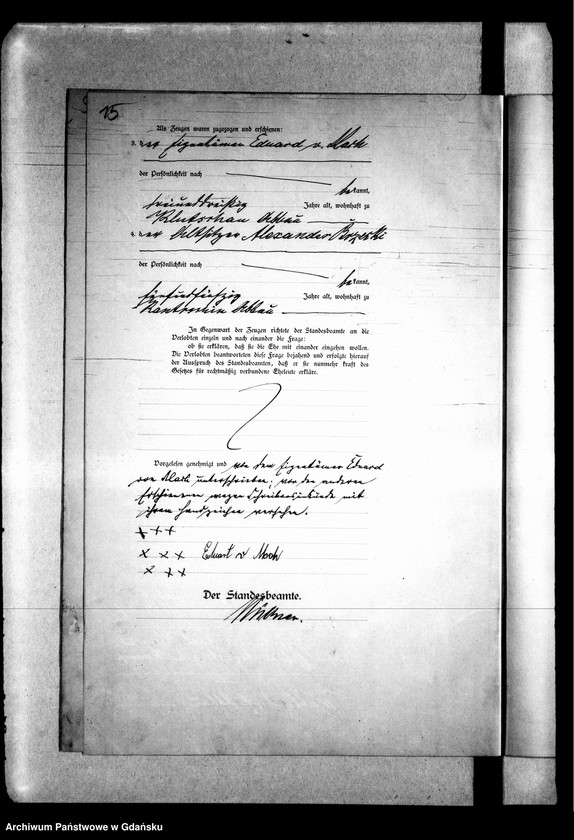 15
Als Zeugen waren zugezogen und erschienen:
3. der Eigentümer Eduard v. Mach
der Persönlichkeit nach
bekannt,
dreiunddreißig Jahre alt, wohnhaft zu
Klutschau Abbau
4. der Altsitzer Alexander
der Persönlichkeit nach
bekannt,
fünfundfünfzig Jahre alt, wohnhaft zu
Abbau
In Gegenwart der Zeugen richtete der Standesbeamte an die
Verlobten einzeln und nach einander die Frage:
ob sie erklären, daß sie die Ehe mit einander eingehen wollen.
Die Verlobten beantworteten diese Frage bejahend und erfolgte hierauf
der Ausspruch des Standesbeamten, daß er sie nunmehr kraft des
Gesetzes für rechtmäßig verbundene Eheleute erkläre.
Vorgelesen genehmigt und von dem Eigentümer Eduard
von Mach unterschrieben; von den anderen
Erschienenen wegen Schreibensunkunde mit
ihrem Handzeichen versehen.
+ + +
x x x Eduart v Mach
x x x
Der Standesbeamte.
Archiwum Państwowe w Gdańsku